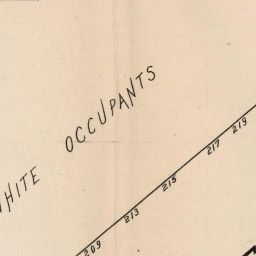 WHITE OCCUPANTS
209 213 215 217 219